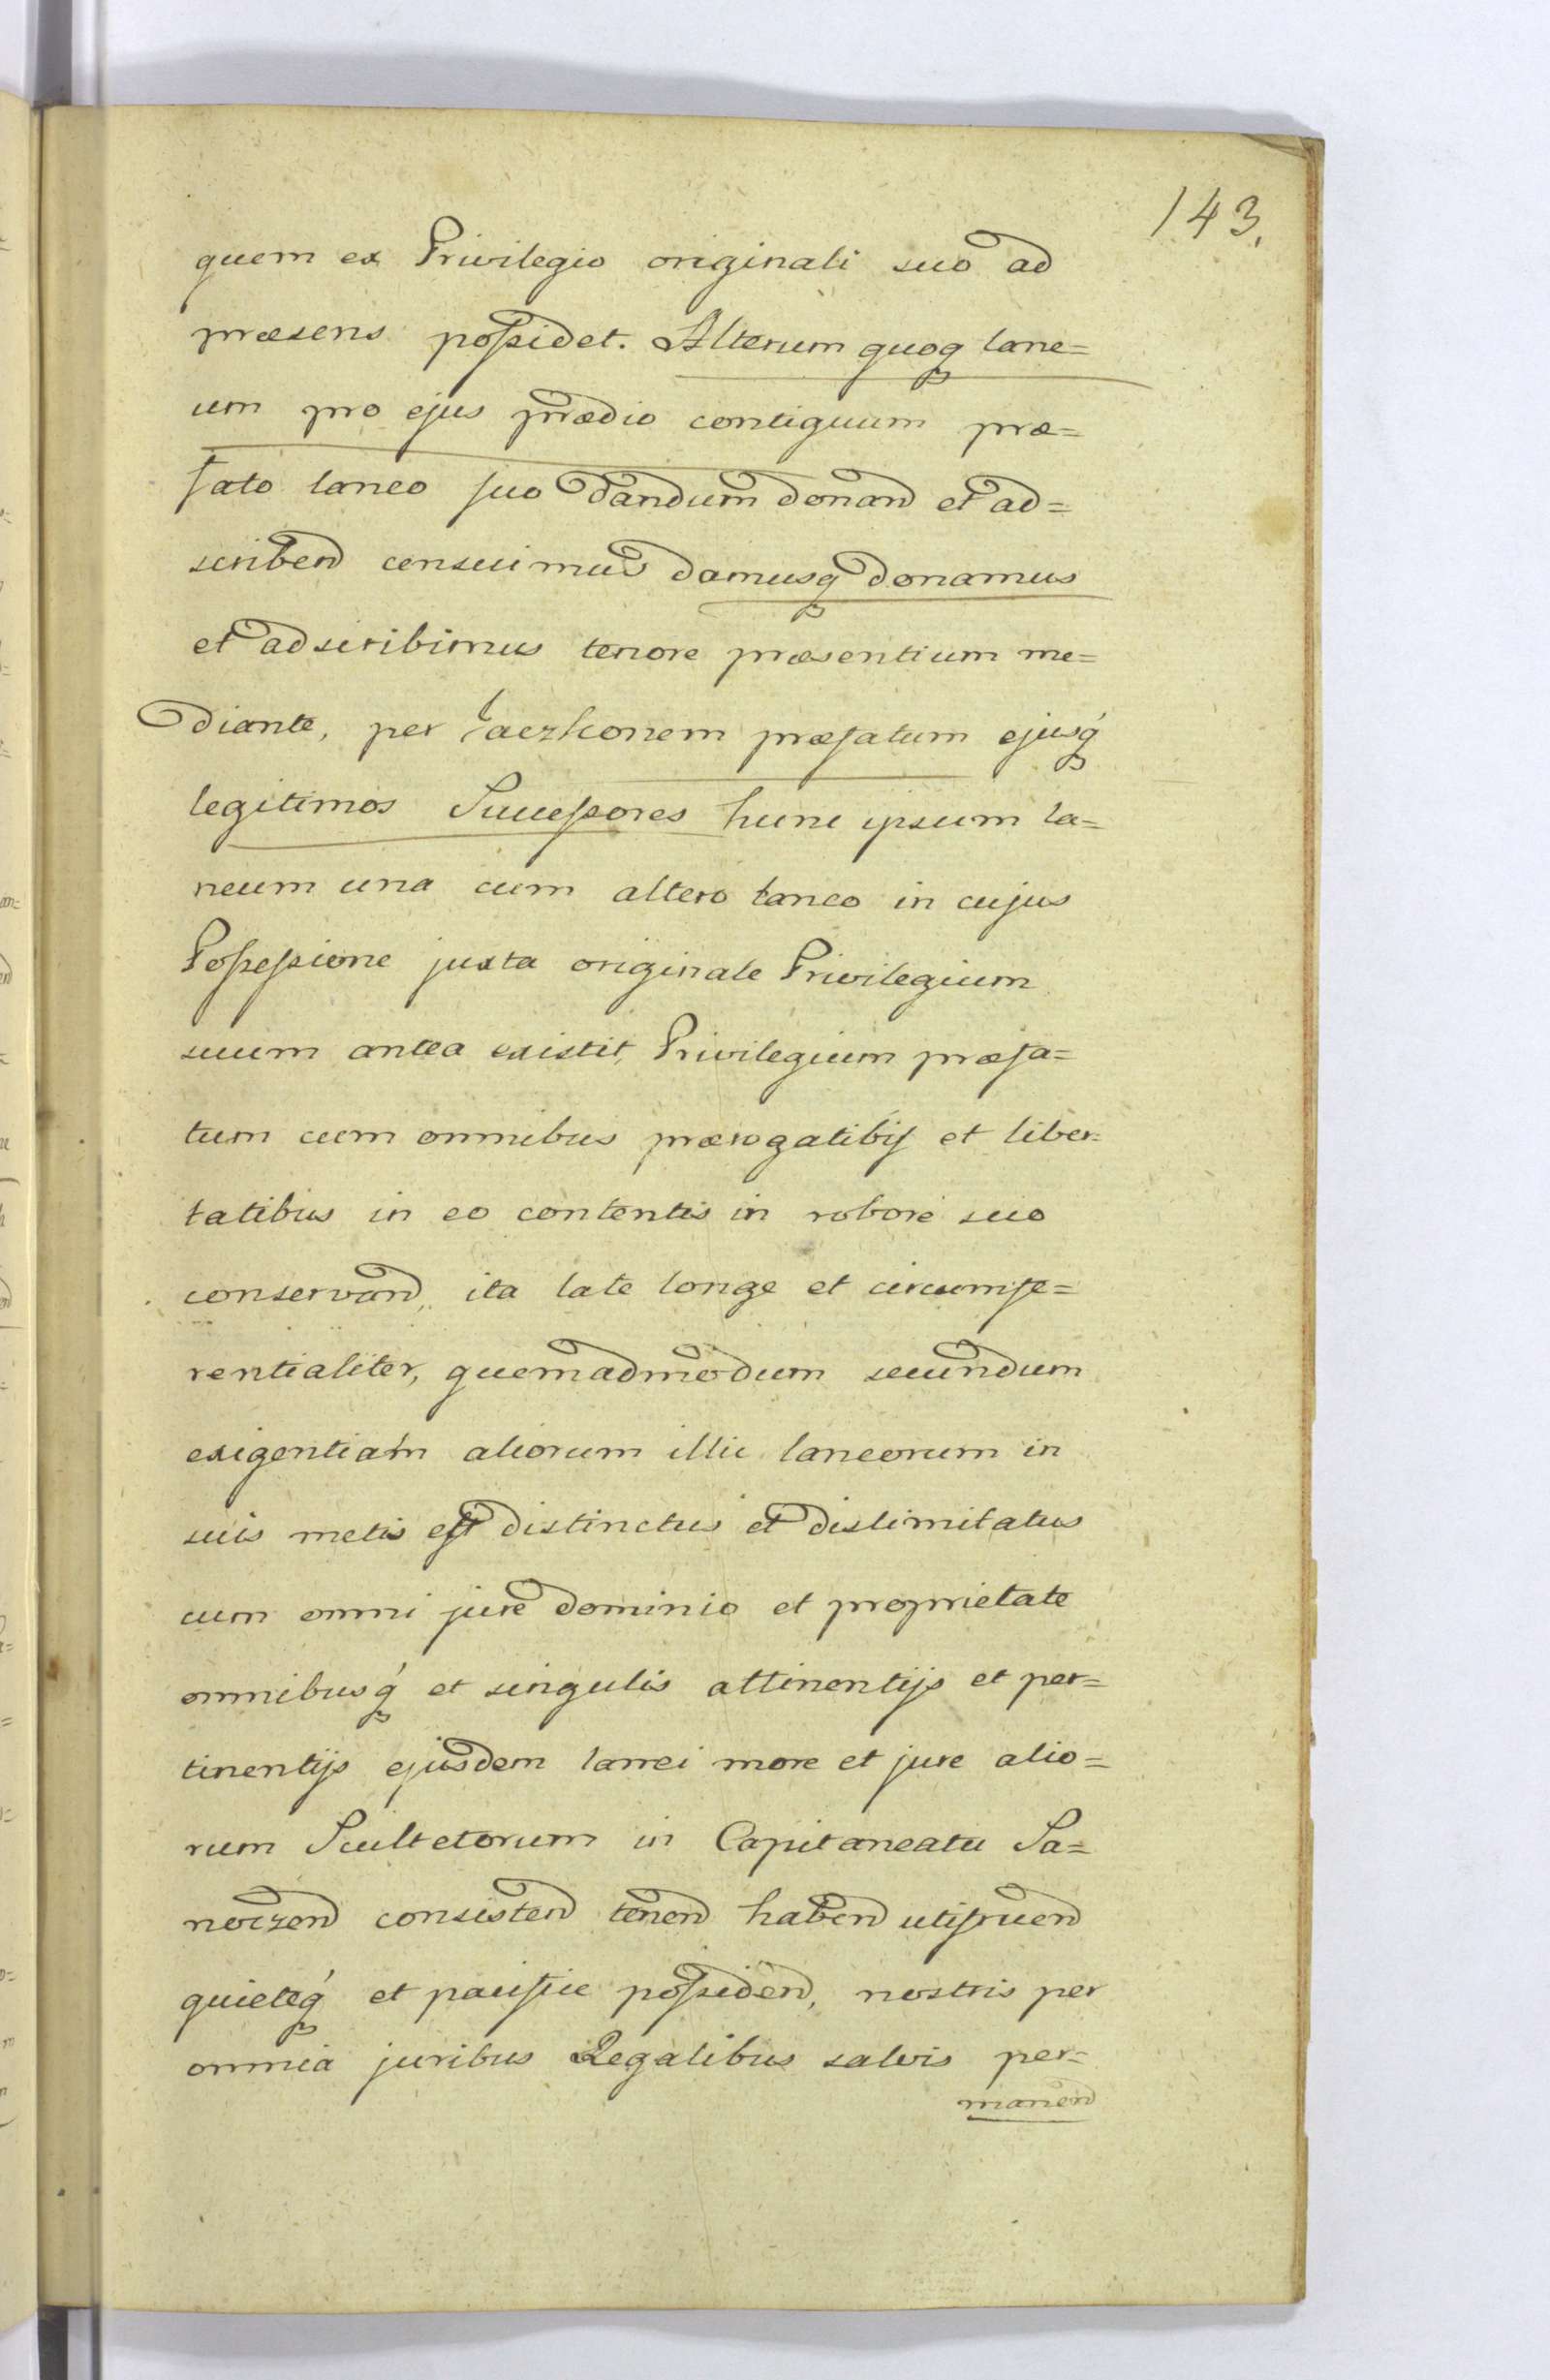 143.
quem ex Privilegio originali suo ad
præsens possidet. Alterum quoq lane=
um pro ejus prædio contiguum præ=
fato laneo suo dandum donand et ad=
scribend censuimus damusq donamus
et adscribimus tenore præsentium me=
diante, per præfatum ejusq
legitimos Successores hunc ipsum la=
neum una cum altero laneo in cujus
Possessione juxta originale Privilegium
suum antea existit, Privilegium præfa=
tum cum omnibus prærogatibus et liber=
tatibus in eo contentis in robore suo
conservand, ita late longe et circumfe=
rentialiter, quemadmodum secundum
exigentiam aliorum illic laneorum in
suis metis est distinctus et dislimitatus
cum omni jure dominio et proprietate
omnibusq et singulis attinentijs et per=
tinentijs ejusdem lanei more et jure alio=
rum Scultetorum in Capitaneatu Sa=
noczen consisten tenend habend utifruend
quieteq et pacifice possidend, nostris per
omnia juribus Regalibus salvis per=
manend